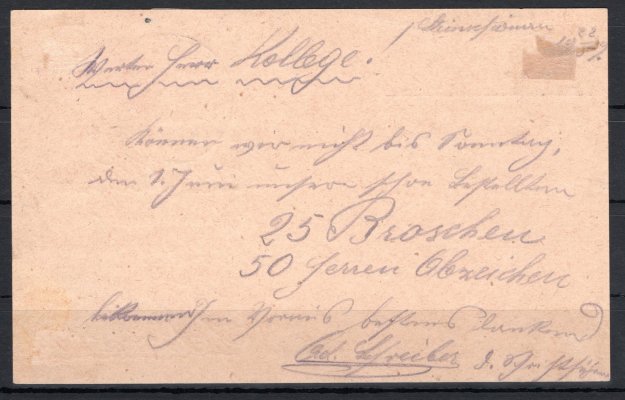 Steinschönau
Werter Herr Kollege!
Können wir nicht bis Sonntag,
den 1. Juni unsere schon bestellten
25 Broschen
50 Herren Abzeichen
bekommen Im Voraus bestens dankend
Ad. Schreiber d. Z. Schriftführer